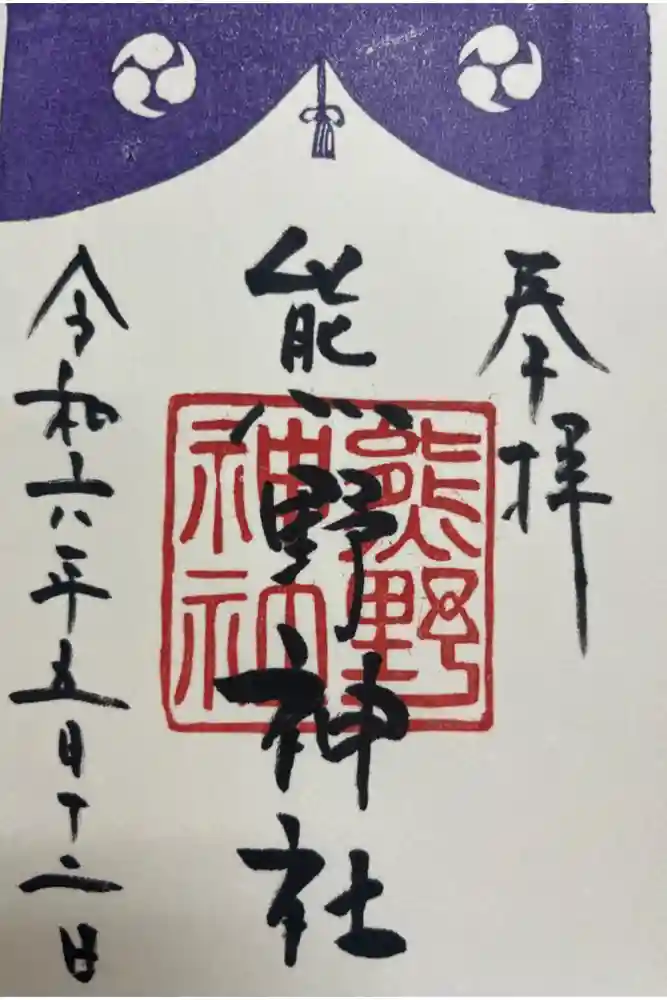 奉拝
熊野神社
熊野神社
令和六年五月十二日